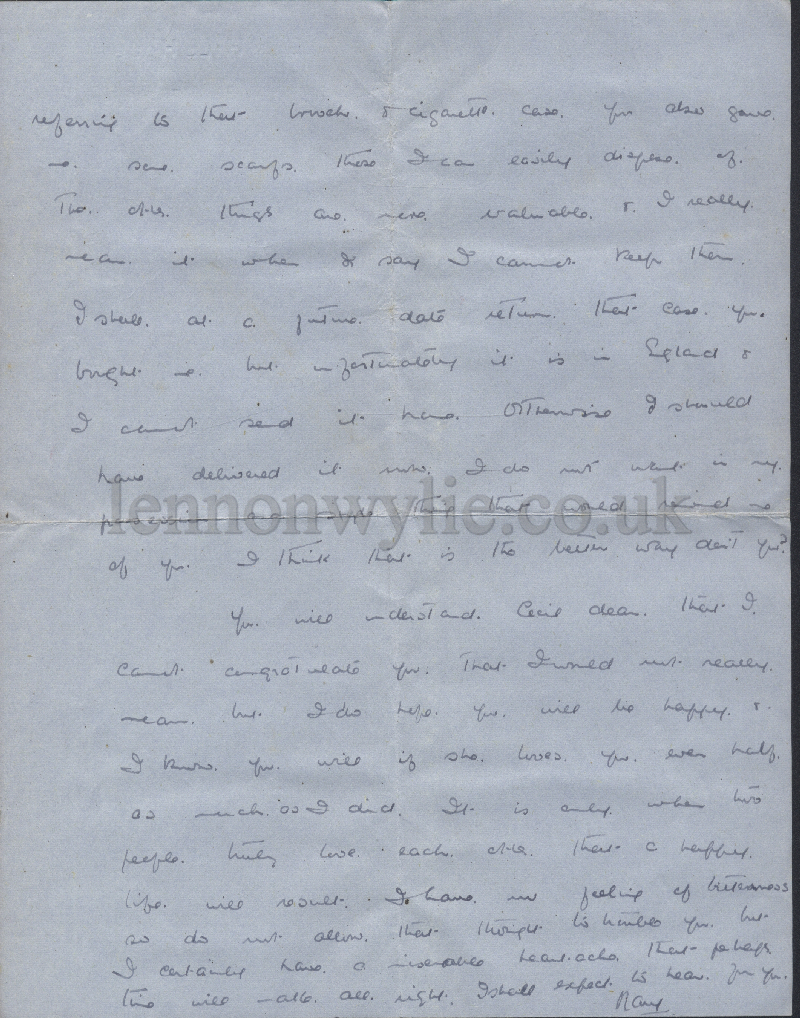 referring to that brooch & cigarette case. You also gave
me some scarfs. These I can easily dispose of.
The other things are more valuable & I really
mean it when I say I cannot keep them.
I shall at a future date return that case you
bought me but unfortunately it is in England &
I cannot send it here. Otherwise I should
have delivered it now. I do not want in my
possession thing that would remind me
of you. I think that is the better way don't you?
You will understand Cecil dear that I
cannot congratulate you. That I would not really
mean but I do hope you will be happy &
I know you will if she loves you even half
as much as I did. It is only when two
people truly love each other that a happy
life will result. I have no feeling of bitterness
so do not allow that thought to trouble you but
I certainly have a miserable heartache that perhaps
time will make all right. I shall expect to hear from you.
Mary
lennonwylie.co.uk